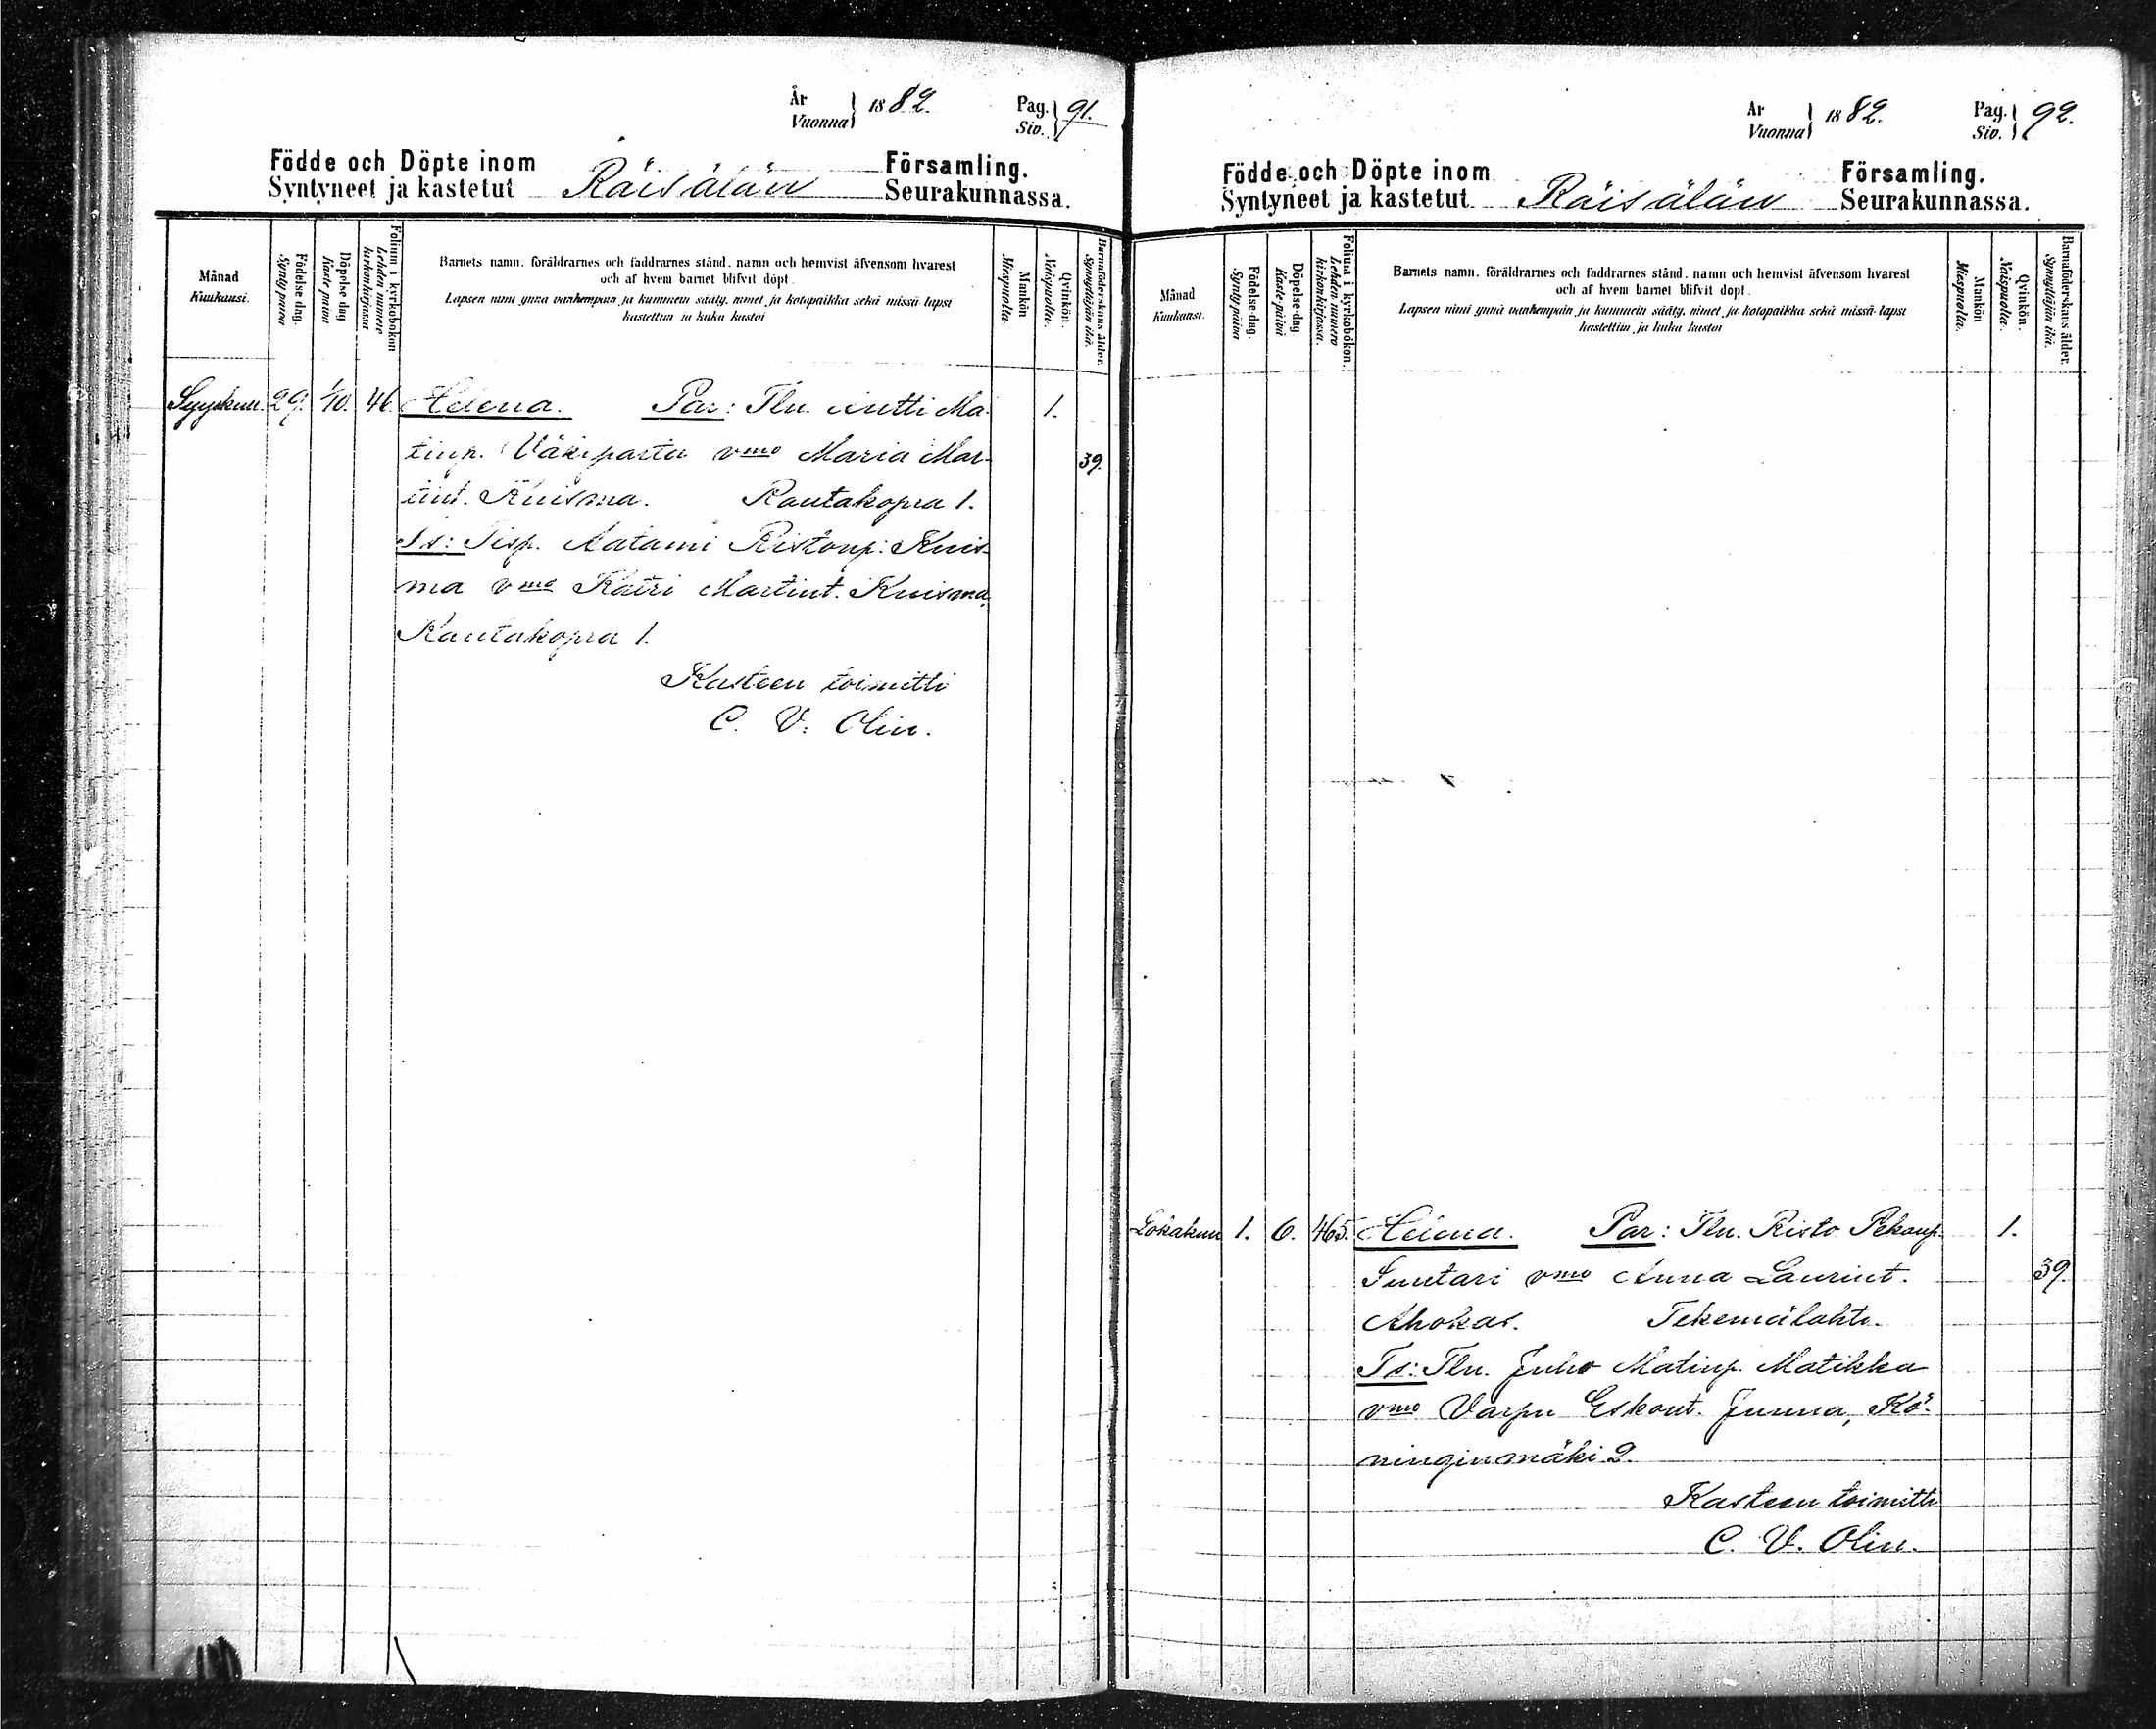 År
Vuonna } 1882.
Pag.
Siv. } 91.
Födde och Döpte inom Församling.
Syntyneet ja kastetut Räisälän Seurakunnassa.
Månad
Kuukausi.
Födelse dag.
Synty päivä
Döpelse dag
Kaste päivä
Folium i kyrkoboken
Lehden numero
kirkonkirjassa
Barnets namn, föräldrarnes och faddrarnes stånd, namn och hemvist äfvensom hvarest
och af hvem barnet blifvit döpt.
Lapsen nimi ynnä vanhempain ja kummein sääty, nimet ja kotopaikka sekä missä lapsi
kastettiin ja kuka kastoi
Mankön
Miespuolia.
Qvinkön.
Naispuolia.
Barnaföderskans ålder.
Synnyttäjän ikä.
Syyskuu. 29. 1/10. 46 Helena. Par: Tln. Antti Ma- 1.
tinp. Väkiparta vmo Maria Mar- 39.
tint. Kuisma. Rautakopra 1.
Ts: Tisp. Aatami Ristonp: Kuis-
ma vmo Katri Martint. Kuisma,
Rautakopra 1.
Kasteen toimitti
C. V. Olin.
År
Vuonna } 1882.
Pag.
Siv. } 92.
Födde och Döpte inom Församling.
Syntyneet ja kastetut Räisälän Seurakunnassa.
Månad
Kuukausi.
Födelse-dag.
Synty päivä
Döpelse-dag
Kaste päivä
Folium i kyrkoboken.
Lehden numero
kirkonkirjassa.
Barnets namn, föräldrarnes och faddrarnes stånd, namn och hemvist äfvensom hvarest
och af hvem barnet blifvit döpt.
Lapsen nimi ynnä vanhempain ja kummein sääty, nimet ja kotopaikka sekä missä lapsi
kastettiin ja kuka kastoi
Mankön
Miespuolia.
Qvinkön.
Naispuolia.
Barnaföderskans ålder.
Synnyttäjän ikä.
Lokakuu 1. 6. 465. Helena. Par: Tln. Risto Pekanp. 1.
Suutari vmo Anna Laurint. 39.
Ahokas. Tekemälahti.
Ts: Tln. Juho Matinp. Matikka
vmo Varpu Eskont. Junna, Kö-
ninginmäki 2.
Kasteen toimitti
C. V. Olin.